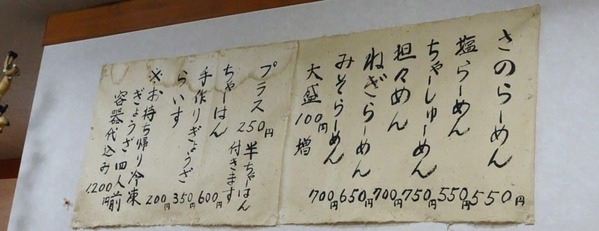 さのらーめん 550円
塩らーめん 550円
ちゃーしゅーめん 750円
担々めん 700円
ねぎらーめん 650円
みそらーめん 700円
大盛100円増
プラス250円半ちゃーはん
付きます
ちゃーはん 600円
手作りぎょうざ 350円
らいす 200円
※お持ち帰り冷凍
ぎょうざ四人前
容器代込み1200円